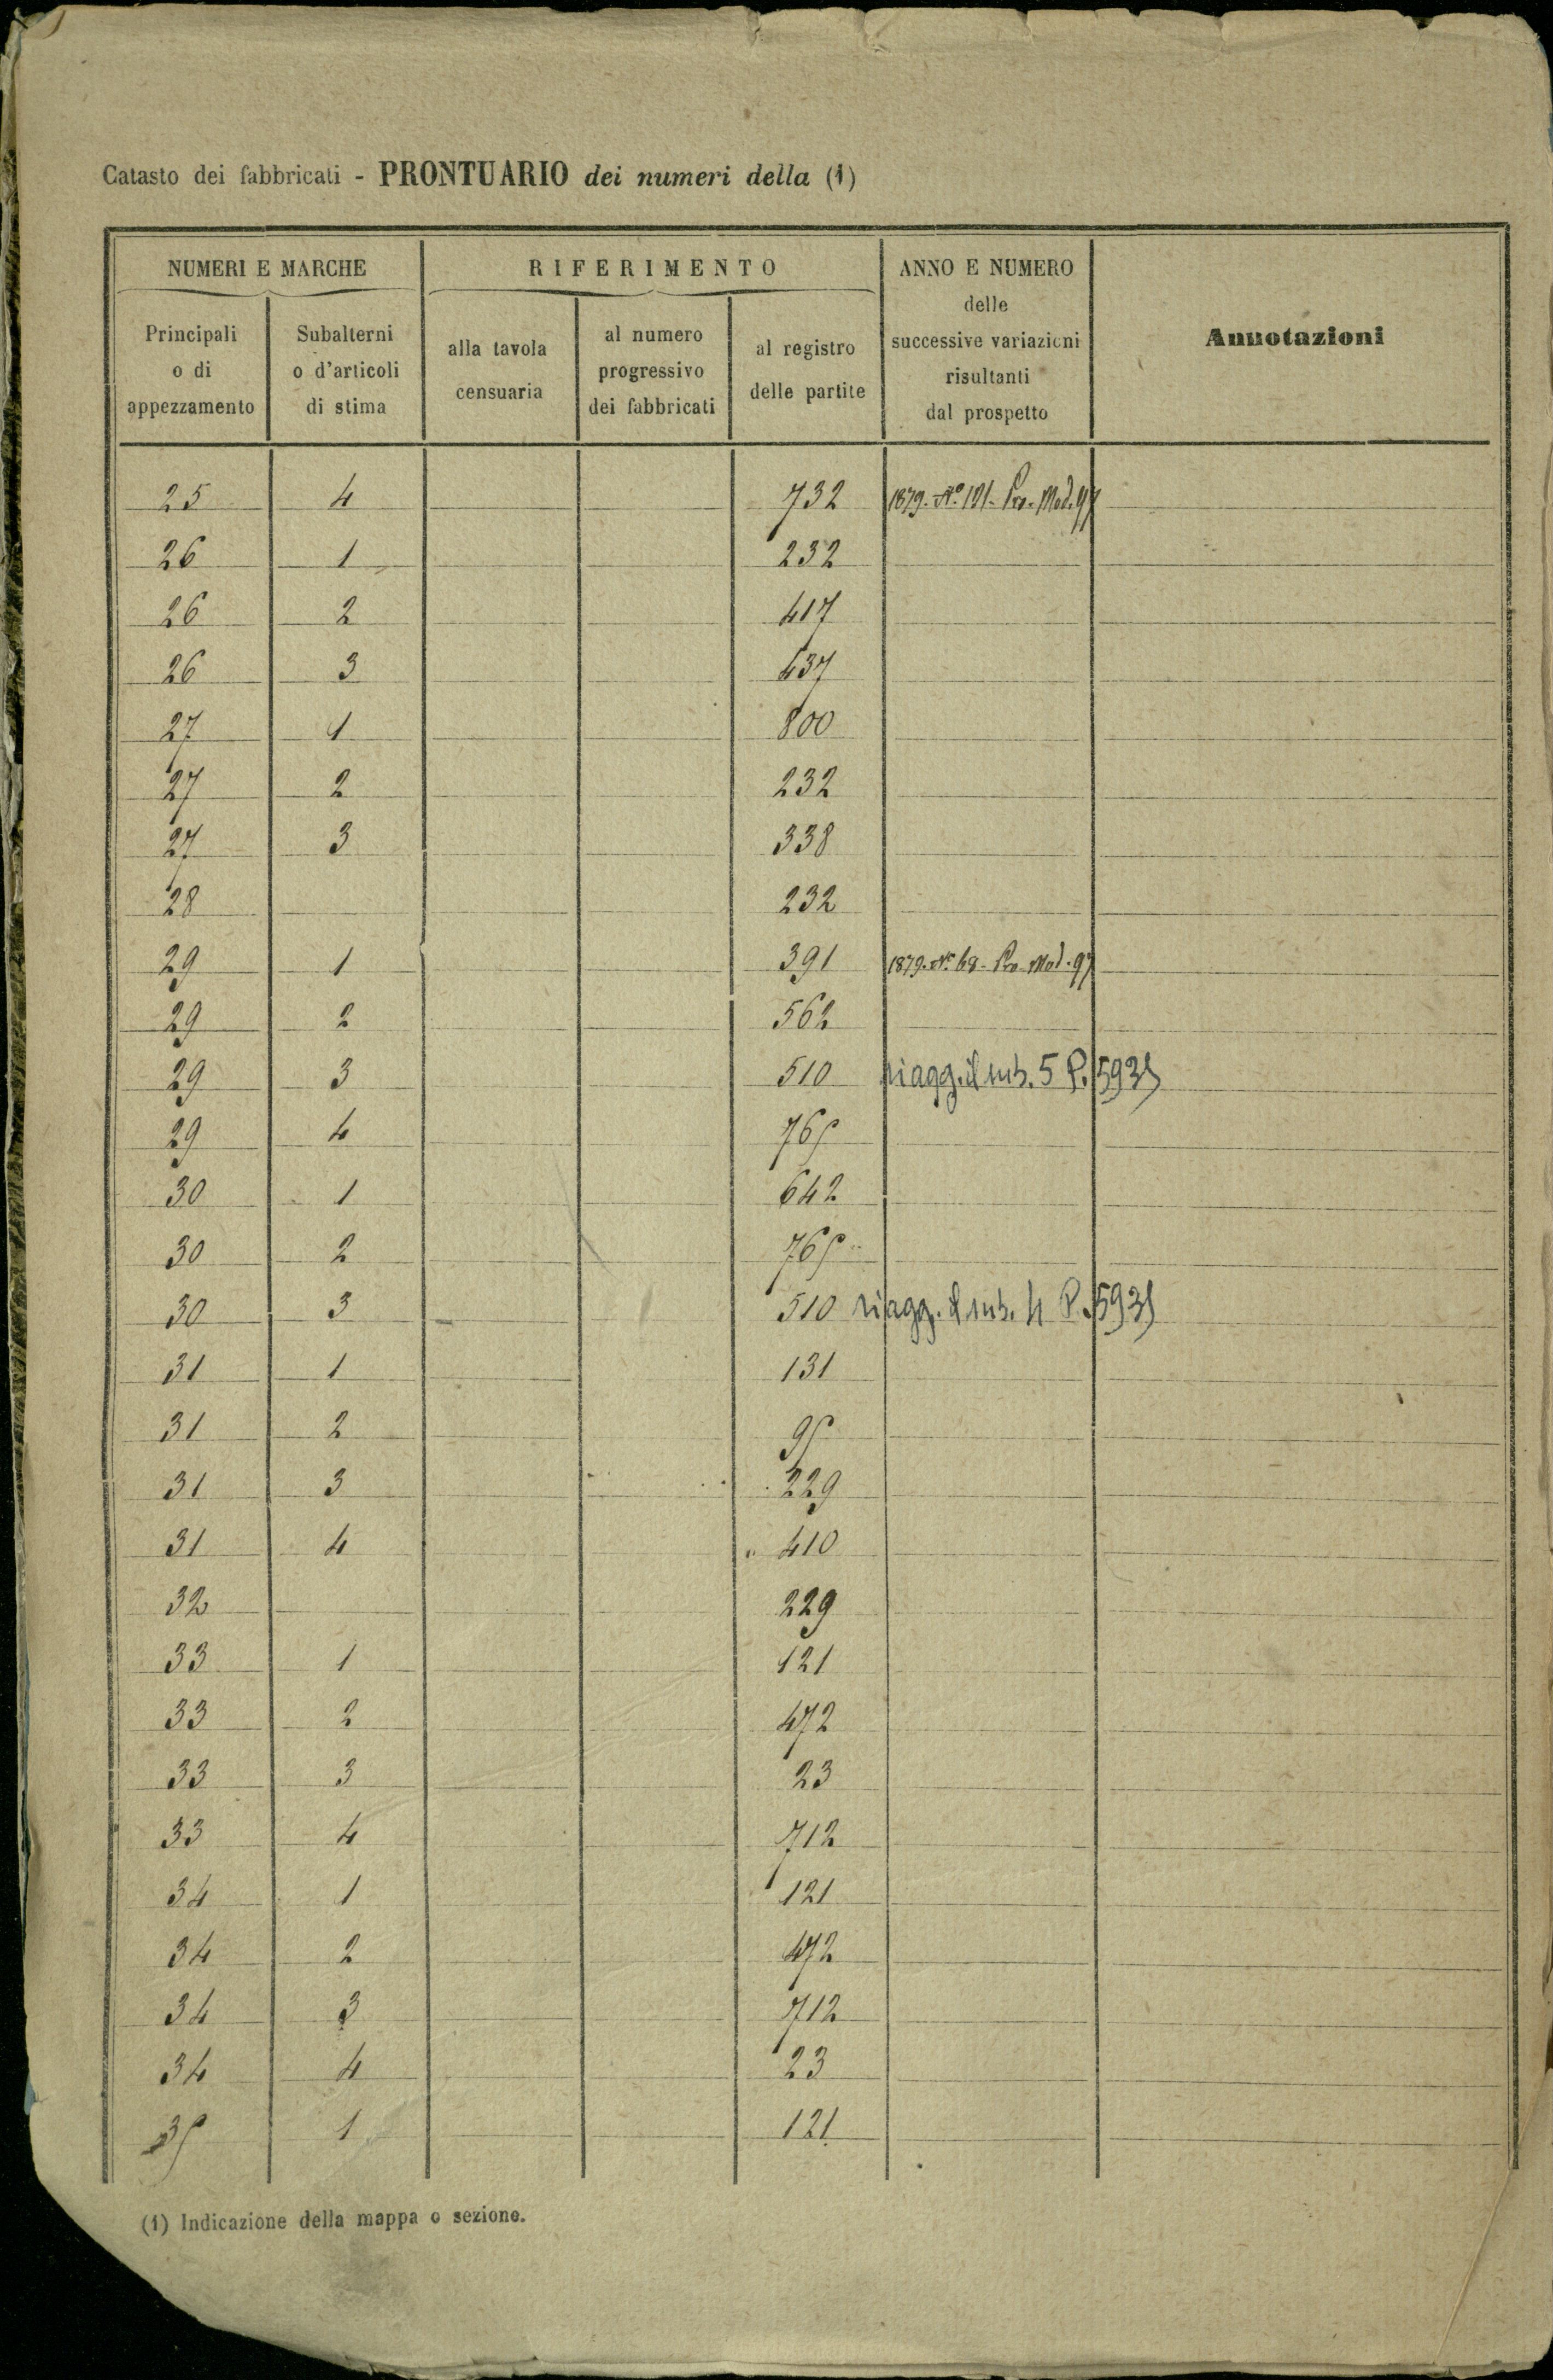 Catasto dei fabbricati - PRONTUARIO dei numeri della (1)
NUMERI E MARCHE
RIFERIMENTO
ANNO E NUMERO
delle
successive variazioni
risultanti
dal prospetto
Annotazioni
Principali
o di
appezzamento
Subalterni
o d'articoli
di stima
alla tavola
censuaria
al numero
progressivo
dei fabbricati
al registro
delle partite
25 4 732 1879. No. 121- Mod. 97
26 1 232
26 2 417
26 3 437
27 1 800
27 2 232
27 3 338
28 232
29 1 391 1879. No. 68- Mod. 97
29 2 562
29 3 510 riagg. il sub. 5 P. 5935
29 4 765
30 1 642
30 2 765
30 3 510 riagg. il sub. 4 P. 5935
31 1 131
31 2 95
31 3 229
31 4 410
32 229
33 1 121
33 2 472
33 3 23
33 4 712
34 1 121
34 2 472
34 3 712
34 4 23
35 1 121
(1) Indicazione della mappa o sezione.